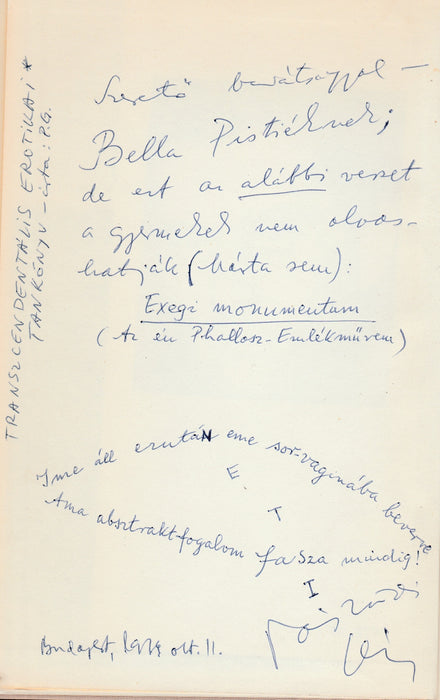 TRANSZCENDENTÁLIS EROTIKAI *
TANKÖNYV – írta: P.G.
Szerető barátsággal –
Bella Pistiéknek;
de ezt az alábbi verset
a gyermekek nem olvas-
hatják (Márta sem):
Exegi monumentum
(Az én P.hallosz-Emlékművem)
Íme áll ezután eme sor-vaginába beverve
N
E.
T
I
Ama absztrakt-fogalom fasza mindig!
Budapest, okt. 11.